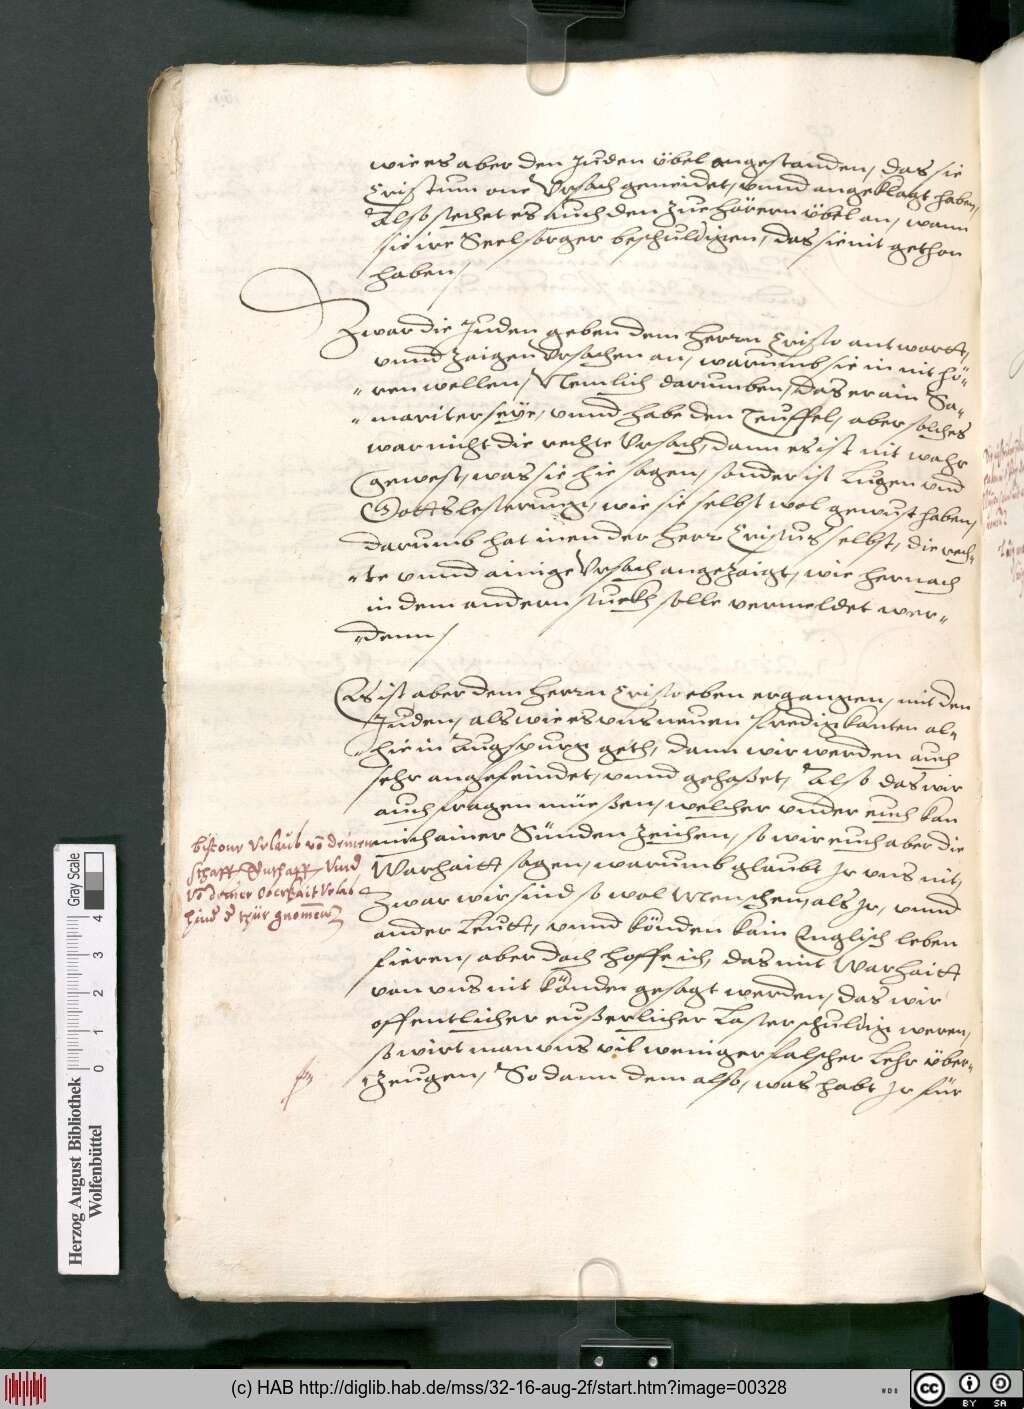 wie es aber den Juden übel angestanden, das sie
Cristum one Vrsach geneidet, vnnd angeklagt haben,
Also stehet es auch den Zuehörern übel an, wann
sie ire Seelsorger beschuldigen, das sie nit gethon
haben,
Zwar die Juden geben dem Herrn Cristo antwortt,
vnnd zaigen Vrsachen an, warumb sie in nit hö-
ren wellen, Nemlich darumben, das er ain Sa-
mariter seye, vnnd habe den Teuffel, aber solches
war nicht die rechte Vrsach, dann es ist nit wahr
gewest, was sie hie sagen, sonder ist Lugen vnd
Gottslesterung, wie sie selbst wol gewust haben,
darumb hat inen der Herr Cristus selbst, die rech-
te vnnd ainige Vrsach angezaigt, wie hernach
in dem andern stuckh solle vermeldet wer-
denn,
Es ist aber dem Herrn Cristo eben ergangen, mit den
Juden, als wie es vns neuen Predigkanten al-
hie in Augspurg geth, dann wir werden auch
sehr angefeindet, vnnd gehaßet, Also das wir
auch fragen müeßen, welcher vnder euch kan
mich ainer Sünden zeichen, so wir euch aber die
Warhaitt sagen, warumb glaubt Jr vns nit,
Zwar wir sind so wol Menschen, als Jr, vnnd
ander Leutt, vnnd könden kain Englisch leben
fieren, aber doch hoffe ich, das mit Warhaitt
von vns nit könden gesagt werden, das wir
offentlicher eußerlicher Laster schuldig weren,
so wirt man vns vil weniger falscher Lehr über-
zeugen, So dann dem also, was habt Jr für
bist one Vrlaub vō deinen
schaff
vō deiner Oberkait
hind d thür gnomen
Herzog August Bibliothek
Wolfenbüttel
Gray Scale
0 1 2 3 4
(c) HAB http://diglib.hab.de/mss/32-16-aug-2f/start.htm?image=00328
WDB
cc BY SA